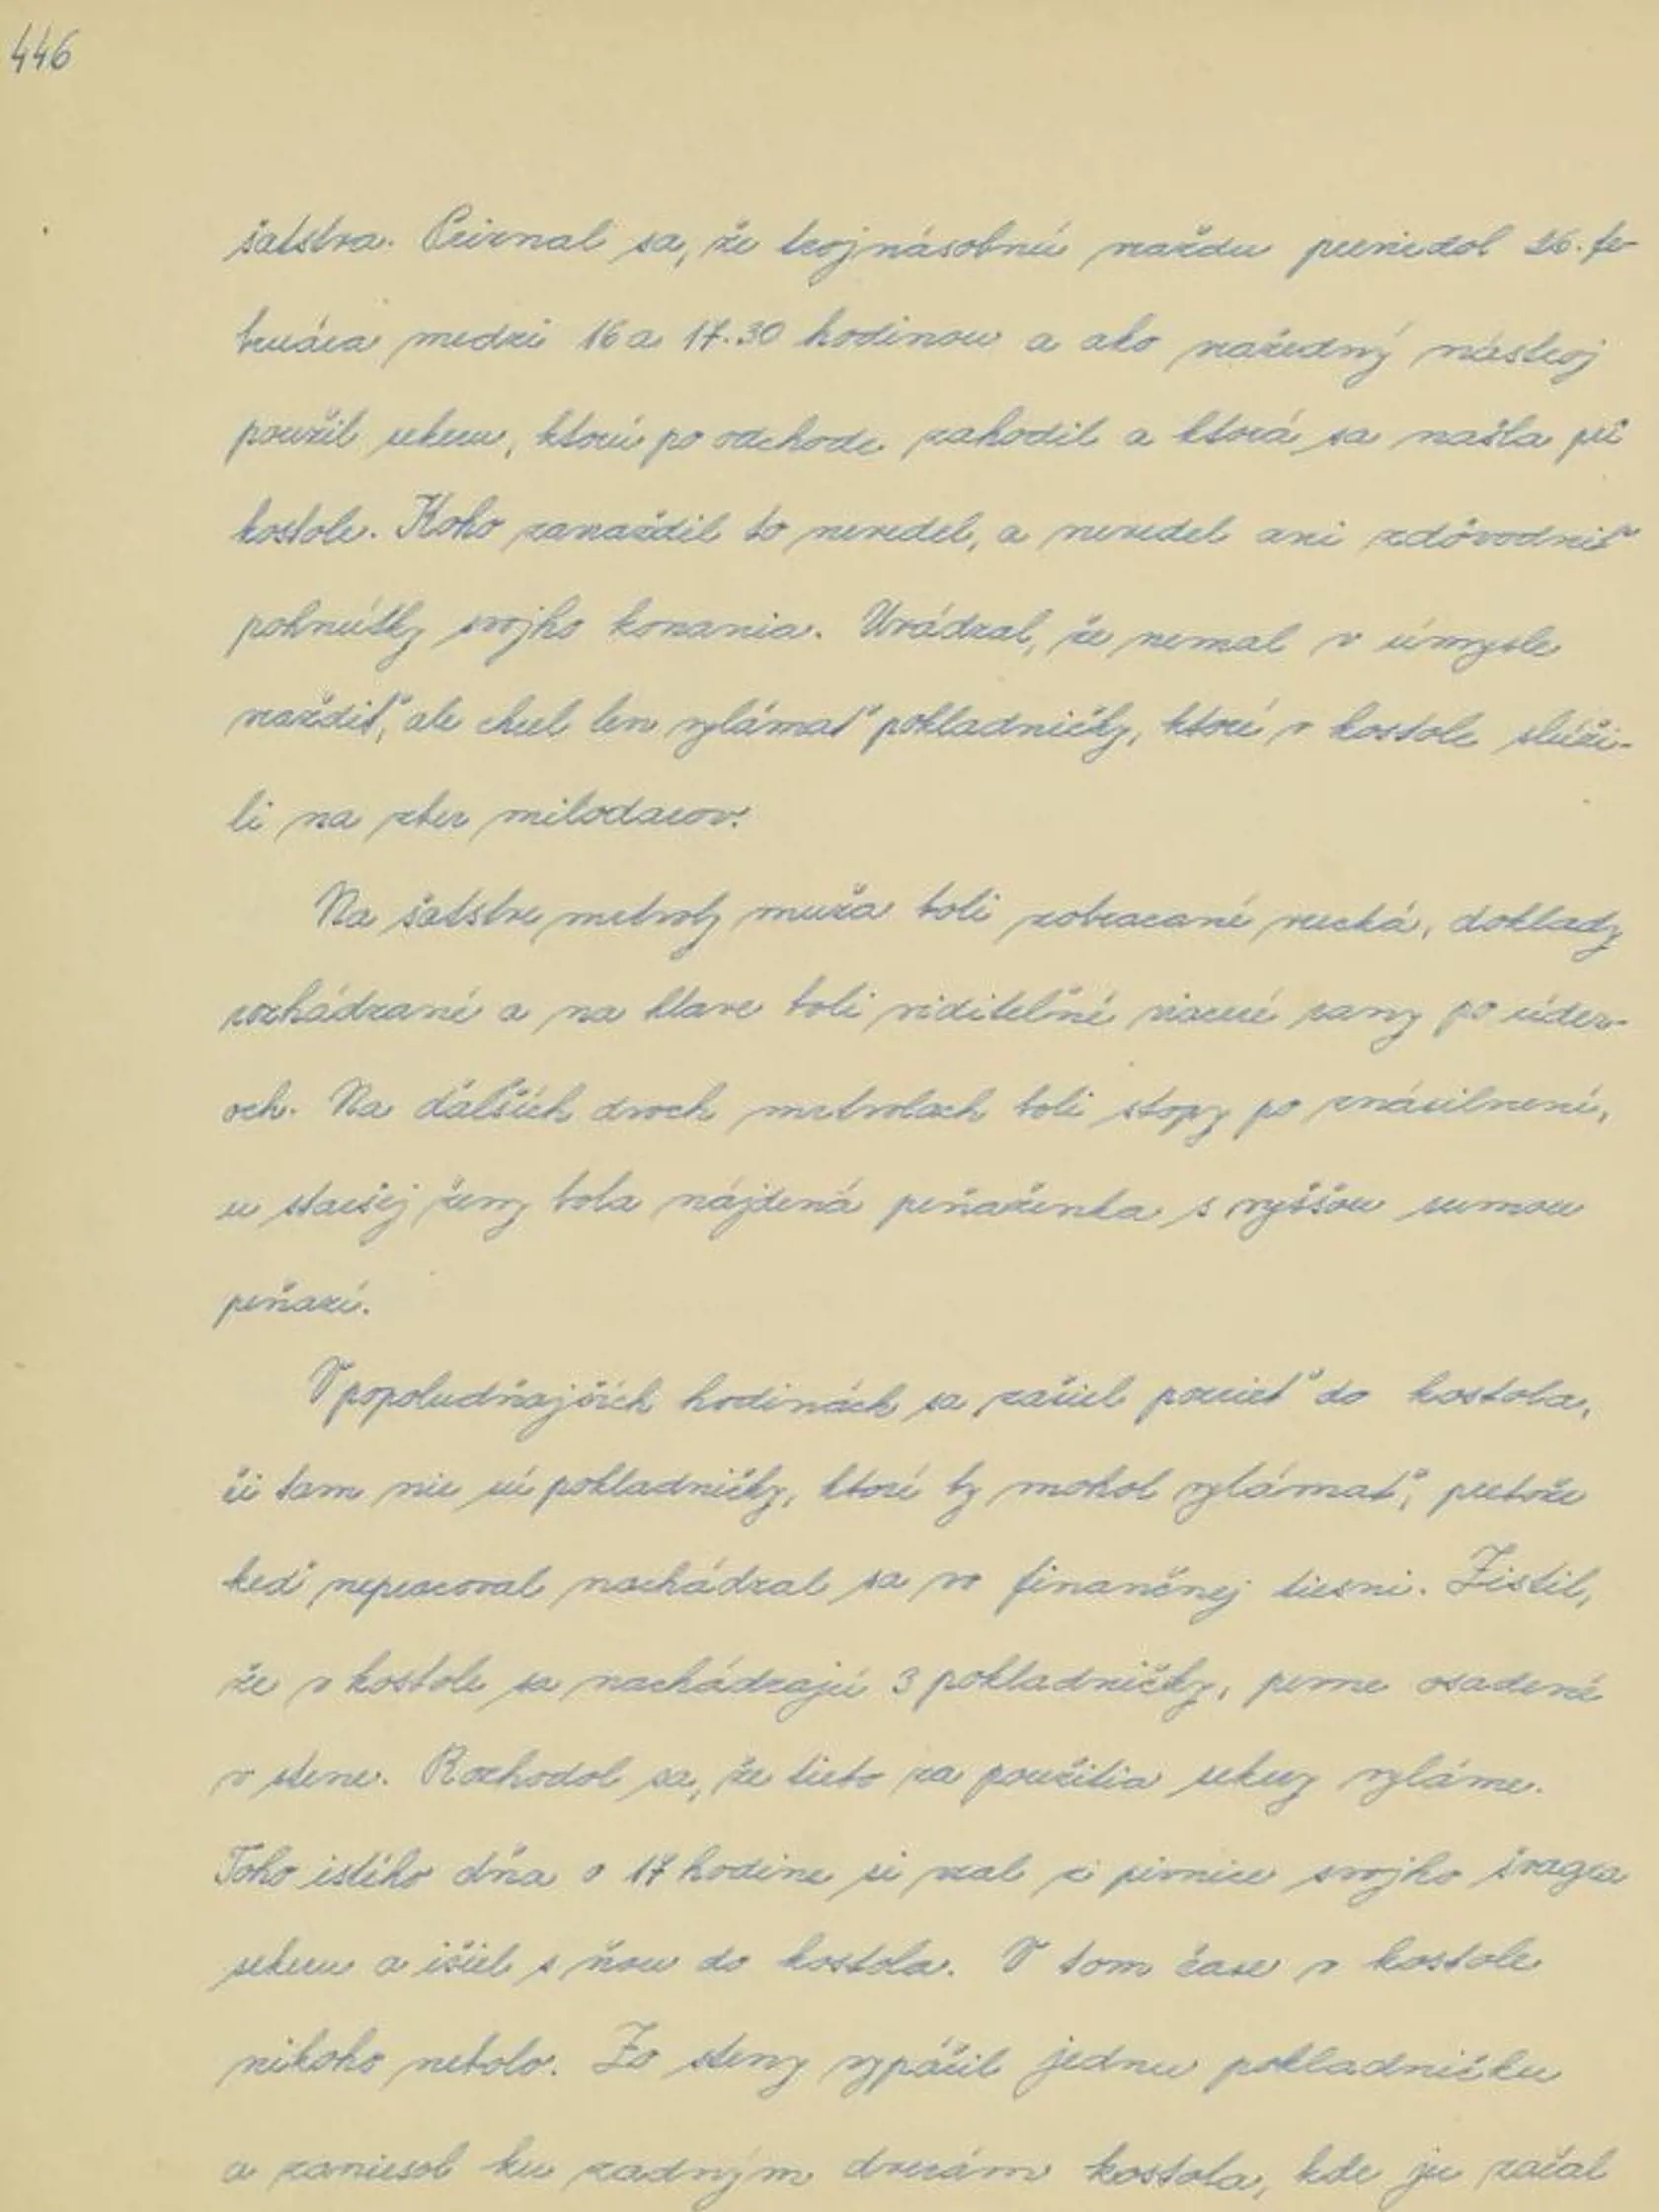 446
šatstva. Priznal sa, že trojnásobnú vraždu previedol 26. fe-
bruára medzi 16 a 17.30 hodinou a ako vražedný nástroj
použil sekeru, ktorú po odchode zahodil a ktorá sa našla pri
kostole. Koho zavraždil to nevedel, a nevedel ani zdôvodniť
pohnútky svojho konania. Uvádzal, že nemal v úmysle
vraždiť, ale chcel len vylámať pokladničky, ktoré v kostole slúži-
li na zber milodarov.
Na šatstve mŕtvoly muža boli zobracané vrecká, doklady
rozhádzané a na hlave boli viditeľné viaceré rany po úder-
och. Na ďaľších dvoch mŕtvolach boli stopy po znásilnení,
u staršej ženy bola nájdená peňaženka s vyššou sumou
peňazí.
V popoludňajších hodinách sa zašiel pozrieť do kostola,
či tam nie sú pokladničky, ktoré by mohol vylámať, pretože
keď nepracoval nachádzal sa vo finančnej tiesni. Zistil,
že v kostole sa nachádzajú 3 pokladničky, pevne osadené
v stene. Rozhodol sa, že tieto za použitia sekery vyláme.
Toho istého dňa o 17 hodine si vzal z pivnice svojho švagra
sekeru a išiel s ňou do kostola. V tom čase v kostole
nikoho nebolo. Zo steny vypáčil jednu pokladničku
a zaniesol ku zadným dverám kostola, kde ju začal